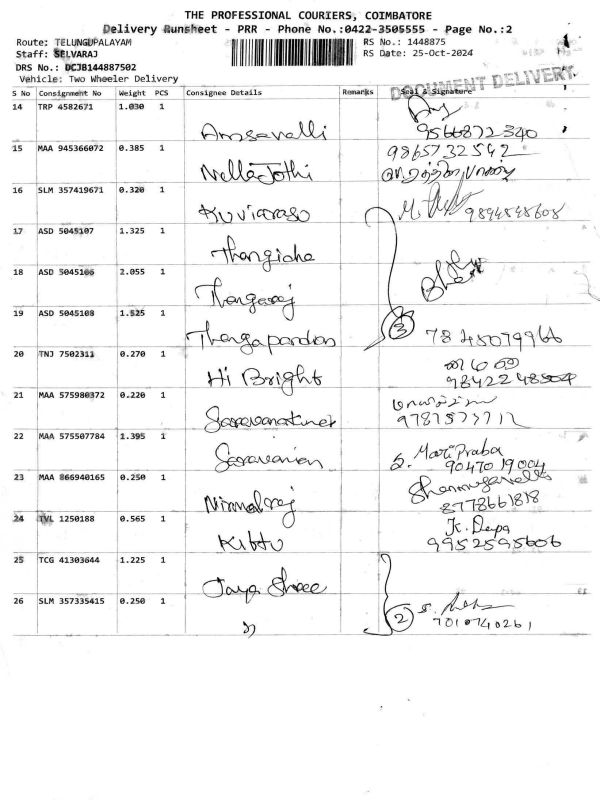 THE PROFESSIONAL COURIERS, COIMBATORE
Delivery Runsheet - PRR - Phone No.:0422-3505555 - Page No.:2
Route: TELUNGUPALAYAM RS No.: 1448875
Staff: SELVARAJ RS Date: 25-Oct-2024
DRS No.: DCJB144887502
Vehicle: Two Wheeler Delivery
DOCUMENT DELIVERY
S No Consignment No Weight PCS Consignee Details Remarks Seal & Signature
14 TRP 4582671 1.030 1
9566872340
15 MAA 945366072 0.385 1 9865732542
Nella Jothi
16 SLM 357419671 0.320 1
Kuviarasu 9894848608
17 ASD 5045107 1.325 1
18 ASD 5045106 2.055 1
Thangaraj
19 ASD 5045108 1.525 1
Thangapandian 3 7845079966
20 TNJ 7502311 0.270 1
Hi Bright
21 MAA 575980372 0.220 1
22 MAA 575507784 1.395 1 S. Mari Praba
Saravanan 9047019004
23 MAA 866940165 0.250 1
Nirmal raj 8778661818
24 TVL 1250188 0.565 1 K. Deepa
Kittu 9952595606
25 TCG 41303644 1.225 1
Jaya Shree
26 SLM 357335415 0.250 1
2 7010740261